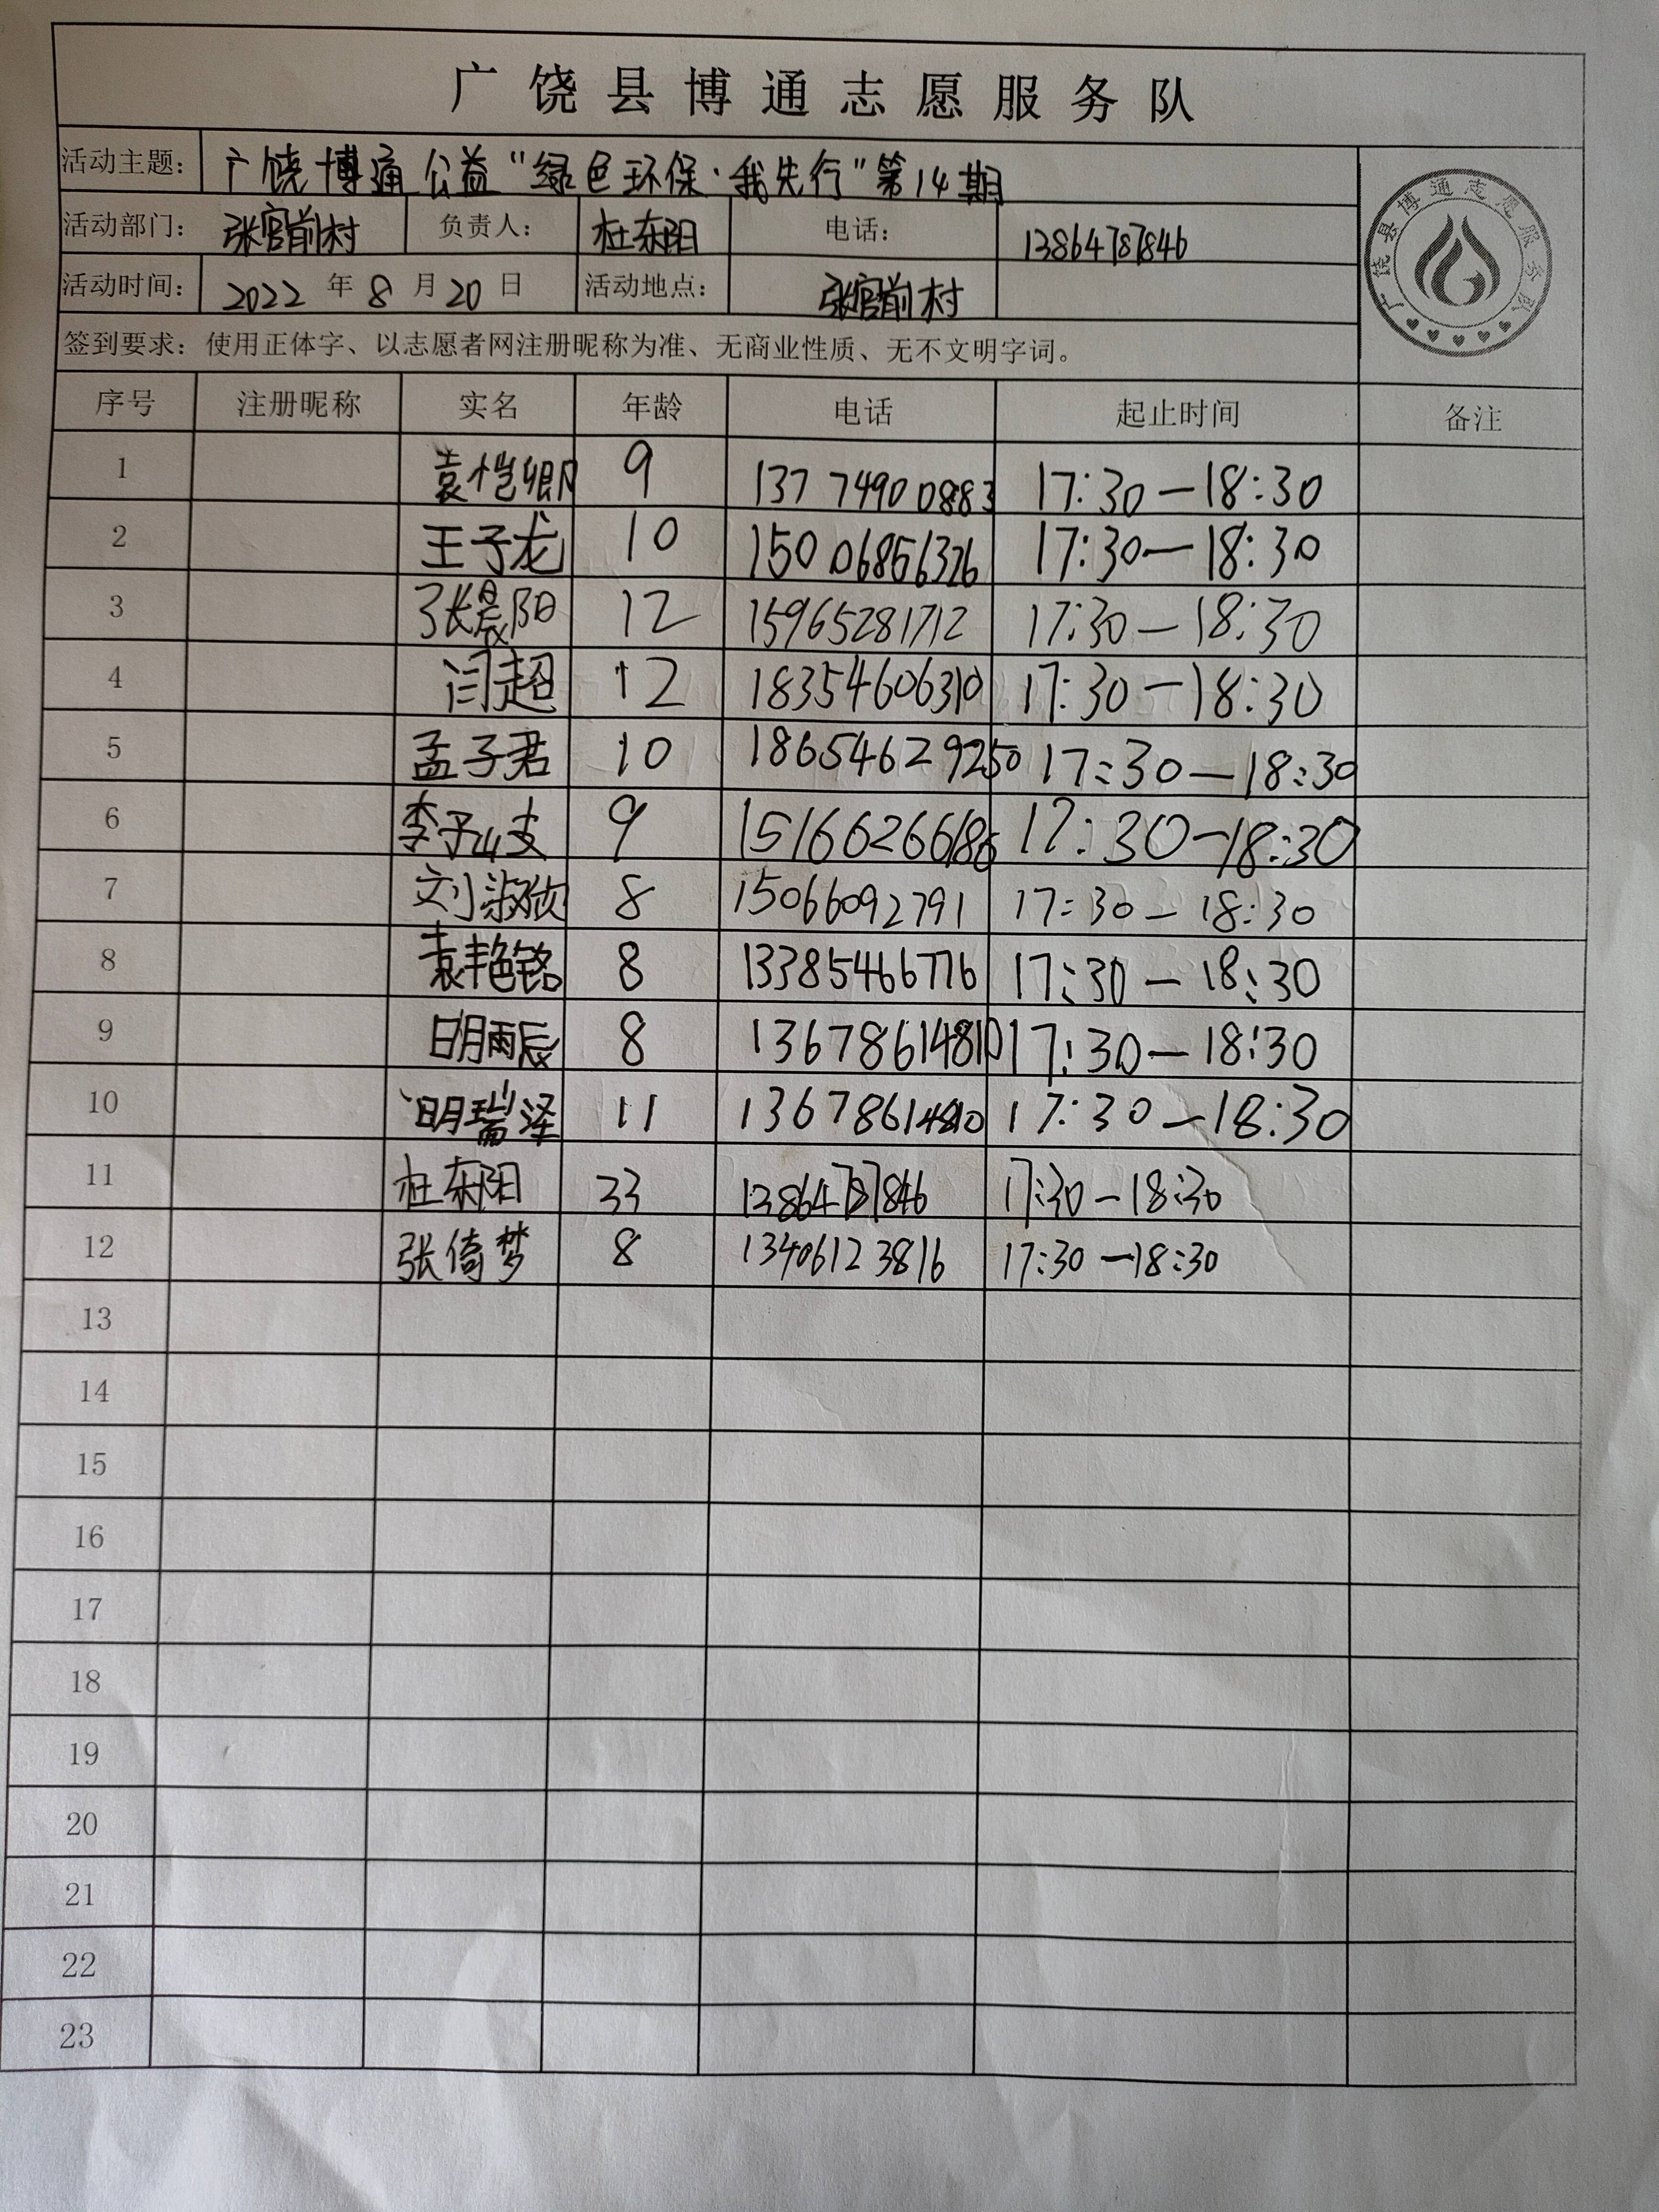 广饶县博通志愿服务队
活动主题： 广饶博通公益“绿色环保·我先行”第14期
活动部门： 张官前村 负责人： 杜东阳 电话： 13864787846
活动时间： 2022 年 8 月 20 日 活动地点： 张官前村
广饶县博通志愿服务队
签到要求：使用正体字、以志愿者网注册昵称为准、无商业性质、无不文明字词。
序号 注册昵称 实名 年龄 电话 起止时间 备注
1 袁恺卿 9 137 7490 0883 17:30—18:30
2 王子龙 10 15006856326 17:30—18:30
3 张晨阳 12 15965281712 17:30—18:30
4 闫超 12 18354606310 17:30—18:30
5 孟子君 10 18654629250 17:30—18:30
6 李予屾支 9 15166266186 17:30—18:30
7 刘淑欣 8 15066092791 17:30—18:30
8 袁艳铭 8 13385466776 17:30—18:30
9 明雨辰 8 13678614810 17:30—18:30
10 明瑞泽 11 13678614810 17:30—18:30
11 杜东阳 33 13864787846 17:30—18:30
12 张倚梦 8 13406123816 17:30—18:30
13
14
15
16
17
18
19
20
21
22
23